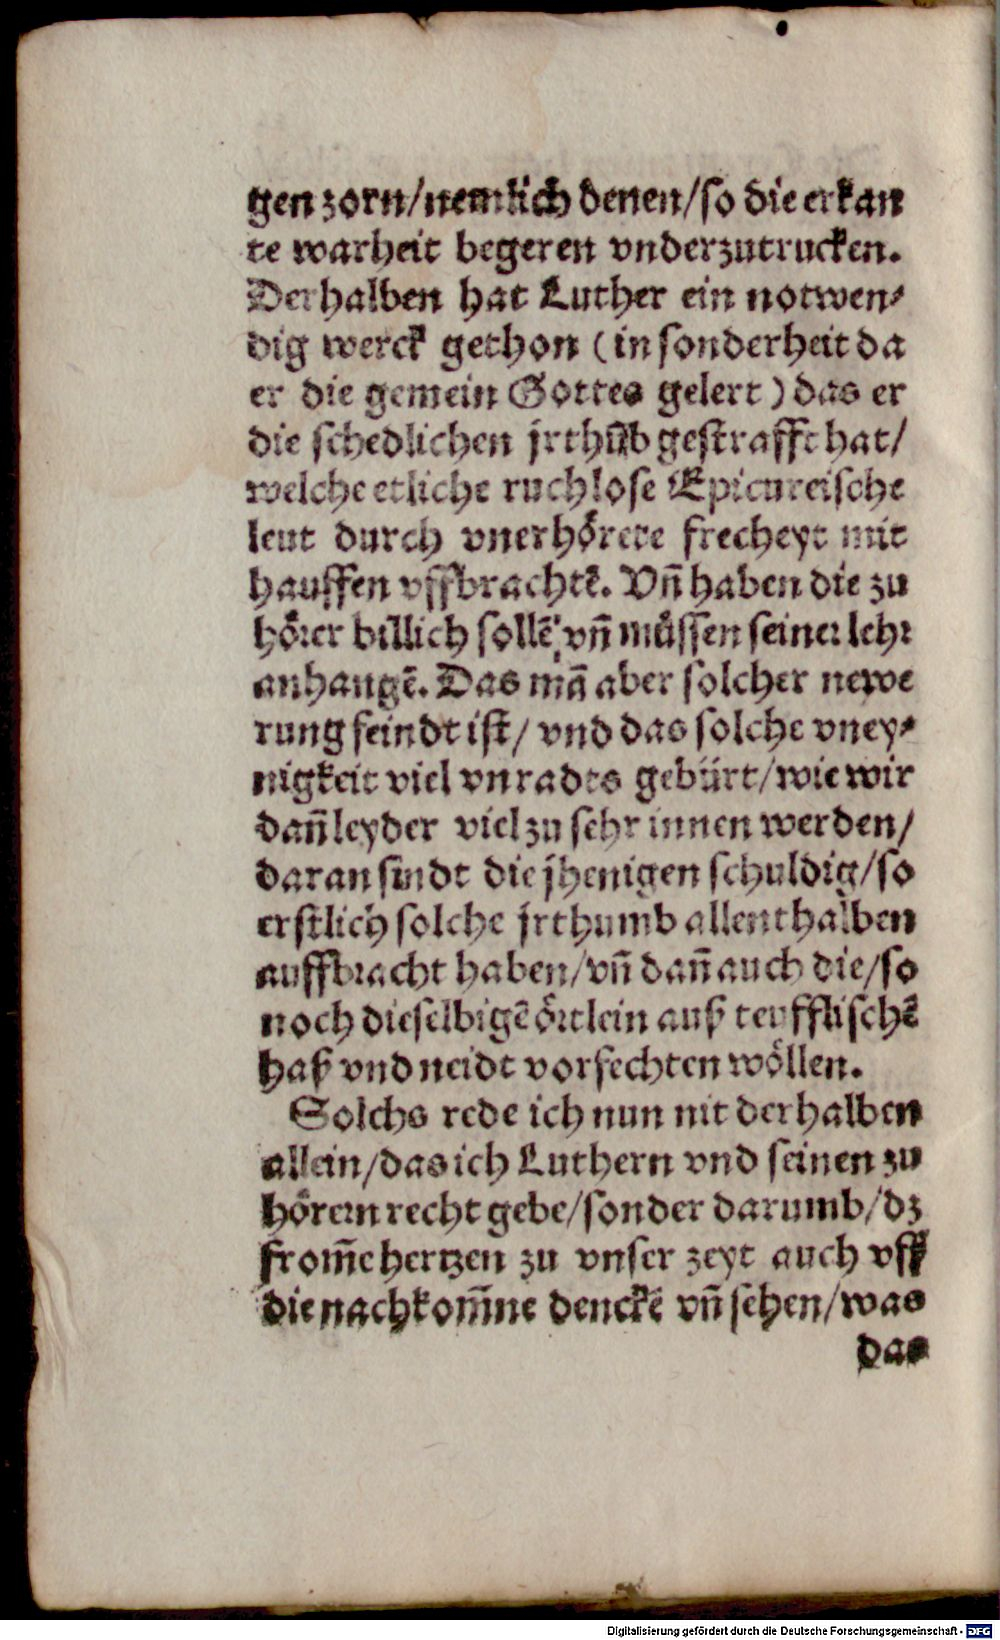 gen zorn/nemlich denen/so die erkan
te warheit begeren vnderzutrucken.
Derhalben hat Luther ein notwen⸗
dig werck gethon (in sonderheit da
er die gemein Gottes gelert) das er
die schedlichen jrthůb gestrafft hat/
welche etliche ruchlose Epicureische
leut durch vnerhörete frecheyt mit
hauffen vffbrachtē. Vñ haben die zu
hörer billich sollē vñ müssen seiner lehr
anhangē. Das mā aber solcher newe
rung feindt ist/ vnd das solche vney⸗
nigkeit viel vnradts gebürt/wie wir
dañ leyder viel zu sehr innen werden/
daran sindt die jhenigen schuldig/so
erstlich solche jrthumb allenthalben
auffbracht haben/vñ dañ auch die/so
noch dieselbigē örtlein auß teufflischē
haß vnd neidt vorfechten wöllen.
Solchs rede ich nun nit derhalben
allein/das ich Luthern vnd seinen zu
hörern recht gebe/sonder darumb/dz
from̄e hertzen zu vnser zeyt auch vff
die nachkom̄ne denckē vñ sehen/was
das
Digitalisierung gefördert durch die Deutsche Forschungsgemeinschaft - DFG